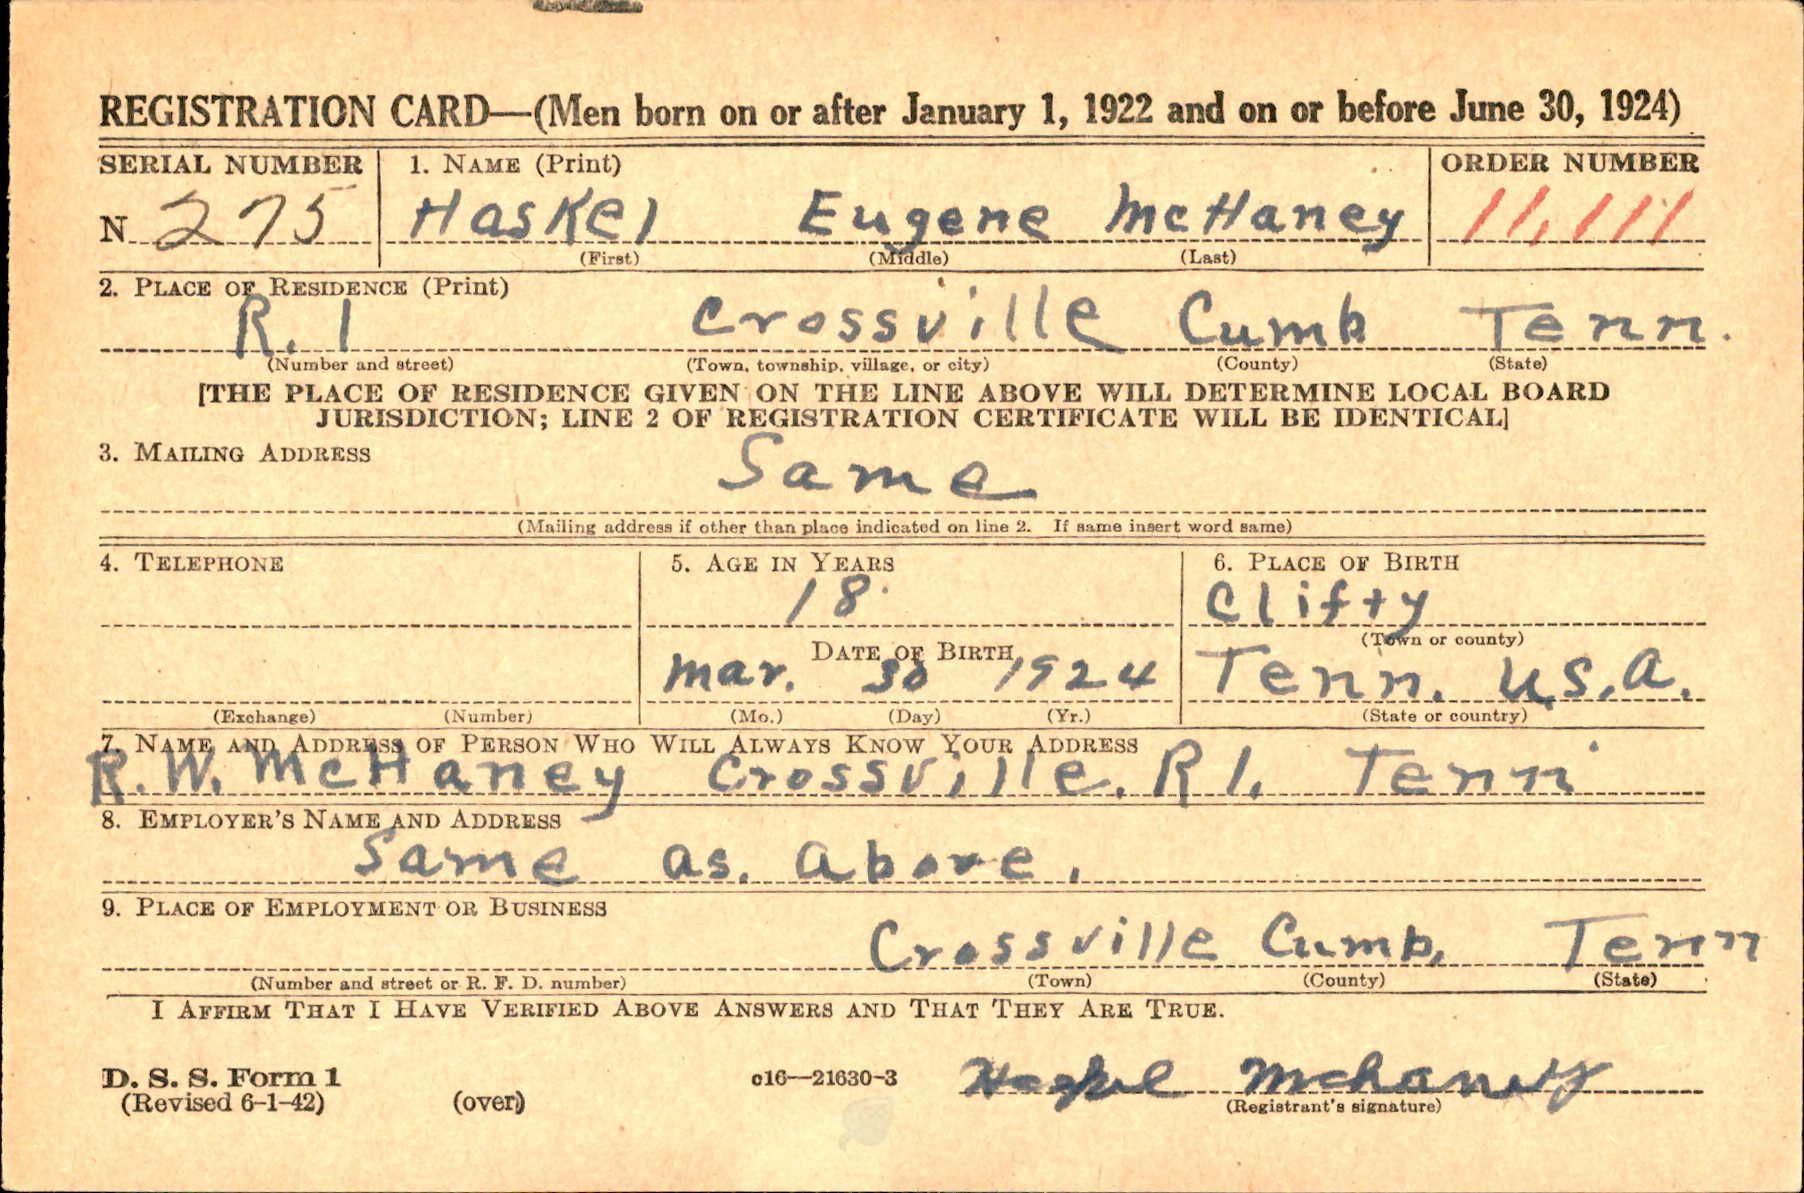 REGISTRATION CARD—(Men born on or after January 1, 1922 and on or before June 30, 1924)
SERIAL NUMBER 1. NAME (Print) ORDER NUMBER
N 275 Haskel Eugene McHaney 11,111
(First) (Middle) (Last)
2. PLACE OF RESIDENCE (Print)
R. 1 Crossville Cumb Tenn.
(Number and street) (Town, township, village, or city) (County) (State)
[THE PLACE OF RESIDENCE GIVEN ON THE LINE ABOVE WILL DETERMINE LOCAL BOARD
JURISDICTION; LINE 2 OF REGISTRATION CERTIFICATE WILL BE IDENTICAL]
3. MAILING ADDRESS
Same
(Mailing address if other than place indicated on line 2. If same insert word same)
4. TELEPHONE 5. AGE IN YEARS 6. PLACE OF BIRTH
18 Clifty
(Town or county)
DATE OF BIRTH
Mar. 30 1924 Tenn. U.S.A.
(Exchange) (Number) (Mo.) (Day) (Yr.) (State or country)
7. NAME AND ADDRESS OF PERSON WHO WILL ALWAYS KNOW YOUR ADDRESS
R.W. McHaney Crossville. R 1. Tenn
8. EMPLOYER'S NAME AND ADDRESS
Same as. above.
9. PLACE OF EMPLOYMENT OR BUSINESS
Crossville Cumb. Tenn
(Number and street or R. F. D. number) (Town) (County) (State)
I AFFIRM THAT I HAVE VERIFIED ABOVE ANSWERS AND THAT THEY ARE TRUE.
D. S. S. Form 1 c16—21630-3 Haskel Mchaney
(Revised 6-1-42) (over) (Registrant's signature)